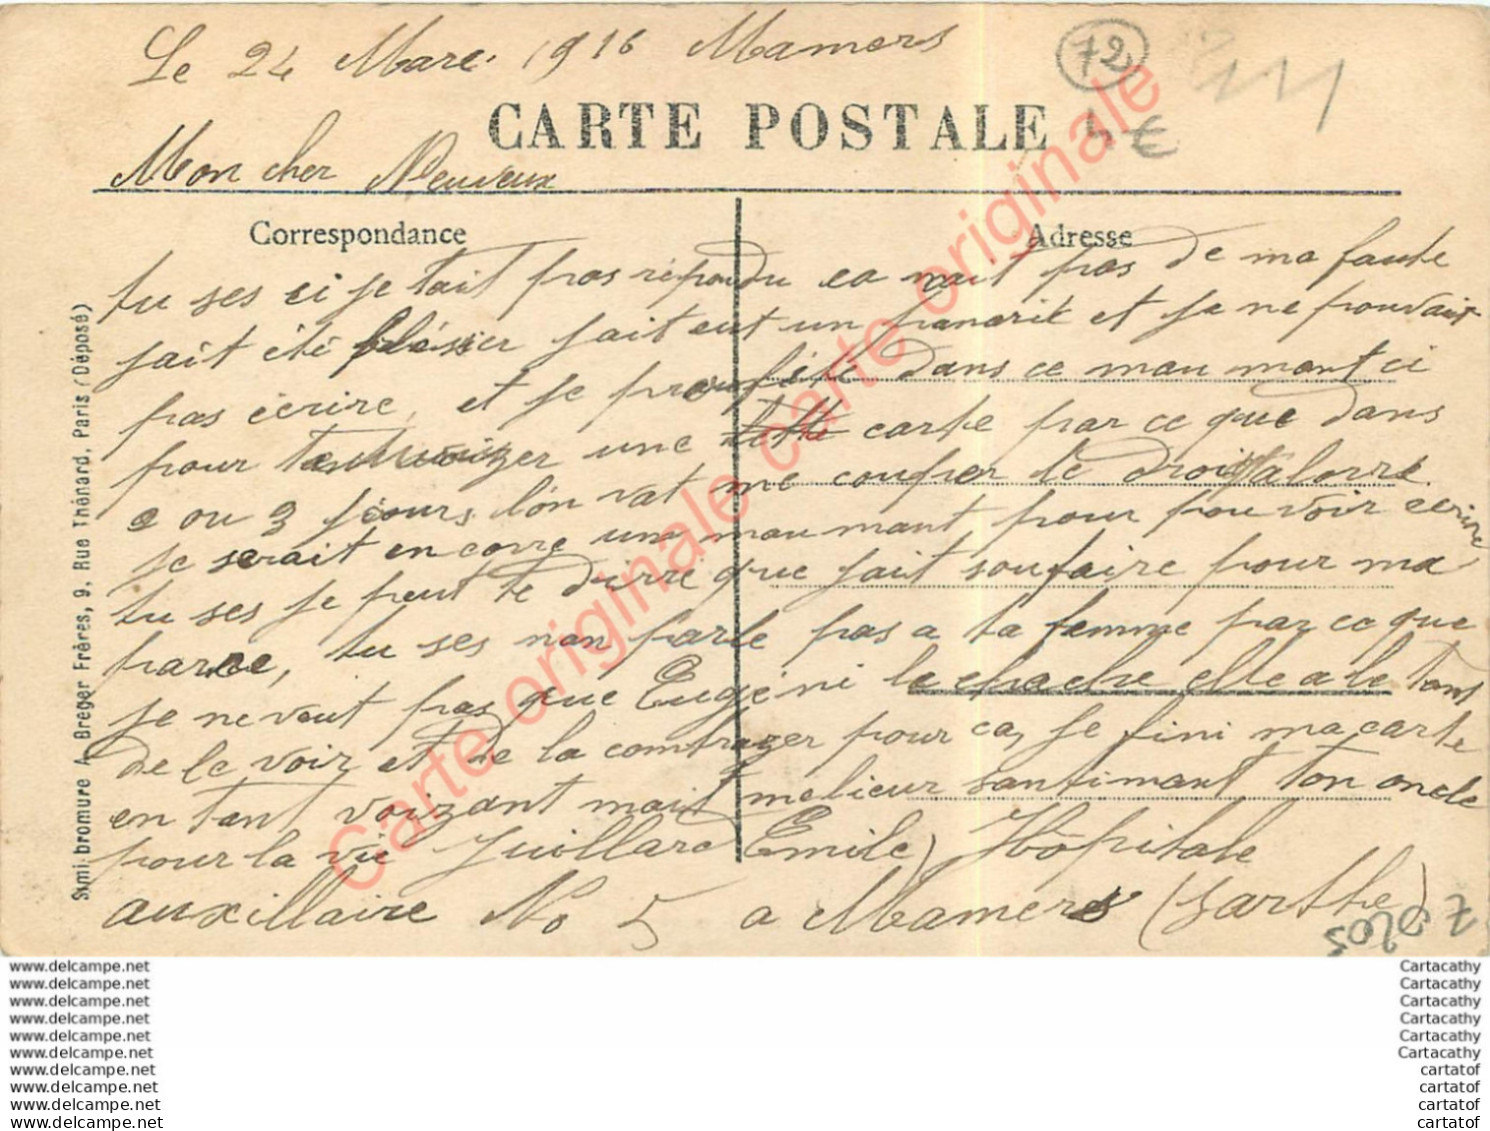 Le 24 Marc. 1916 Mamers
72
CARTE POSTALE
4 €
Mon cher Neuveux
Correspondance
Adresse
tu ses ci je tait pas répondu ca nait pas de ma faute
jait été blésser jait eut un panarit et je ne pouvait
pas écrire, et je proufite dans ce mau mant ci
pour une lette carte par ce que dans
2 ou 3 jours, l'on vat me couper le droit alorre
je serait encorre un mau mant pour pouvoir ecrire
tu ses je peut te dirre que jait soufaire pour ma
parce, tu ses nan parle pas a ta femme par ce que
je ne veut pas que Eugéni le chache elle a le tans
de le voir et de la comtrazer pour ca, je fini ma carte
en tant voizant mait melieur santimant ton oncle
pour la vie Juillard Emile Hôpitale
auxillaire No 5 a Mamers (Sarthe)
Simi-bromure A. Breger Frères, 9, Rue Thénard, Paris (Déposé)
Carte originale carte originale carte originale
www.delcampe.net
www.delcampe.net
www.delcampe.net
www.delcampe.net
www.delcampe.net
www.delcampe.net
www.delcampe.net
www.delcampe.net
www.delcampe.net
www.delcampe.net
Cartacathy
Cartacathy
Cartacathy
Cartacathy
Cartacathy
Cartacathy
cartatof
cartatof
cartatof
cartatof